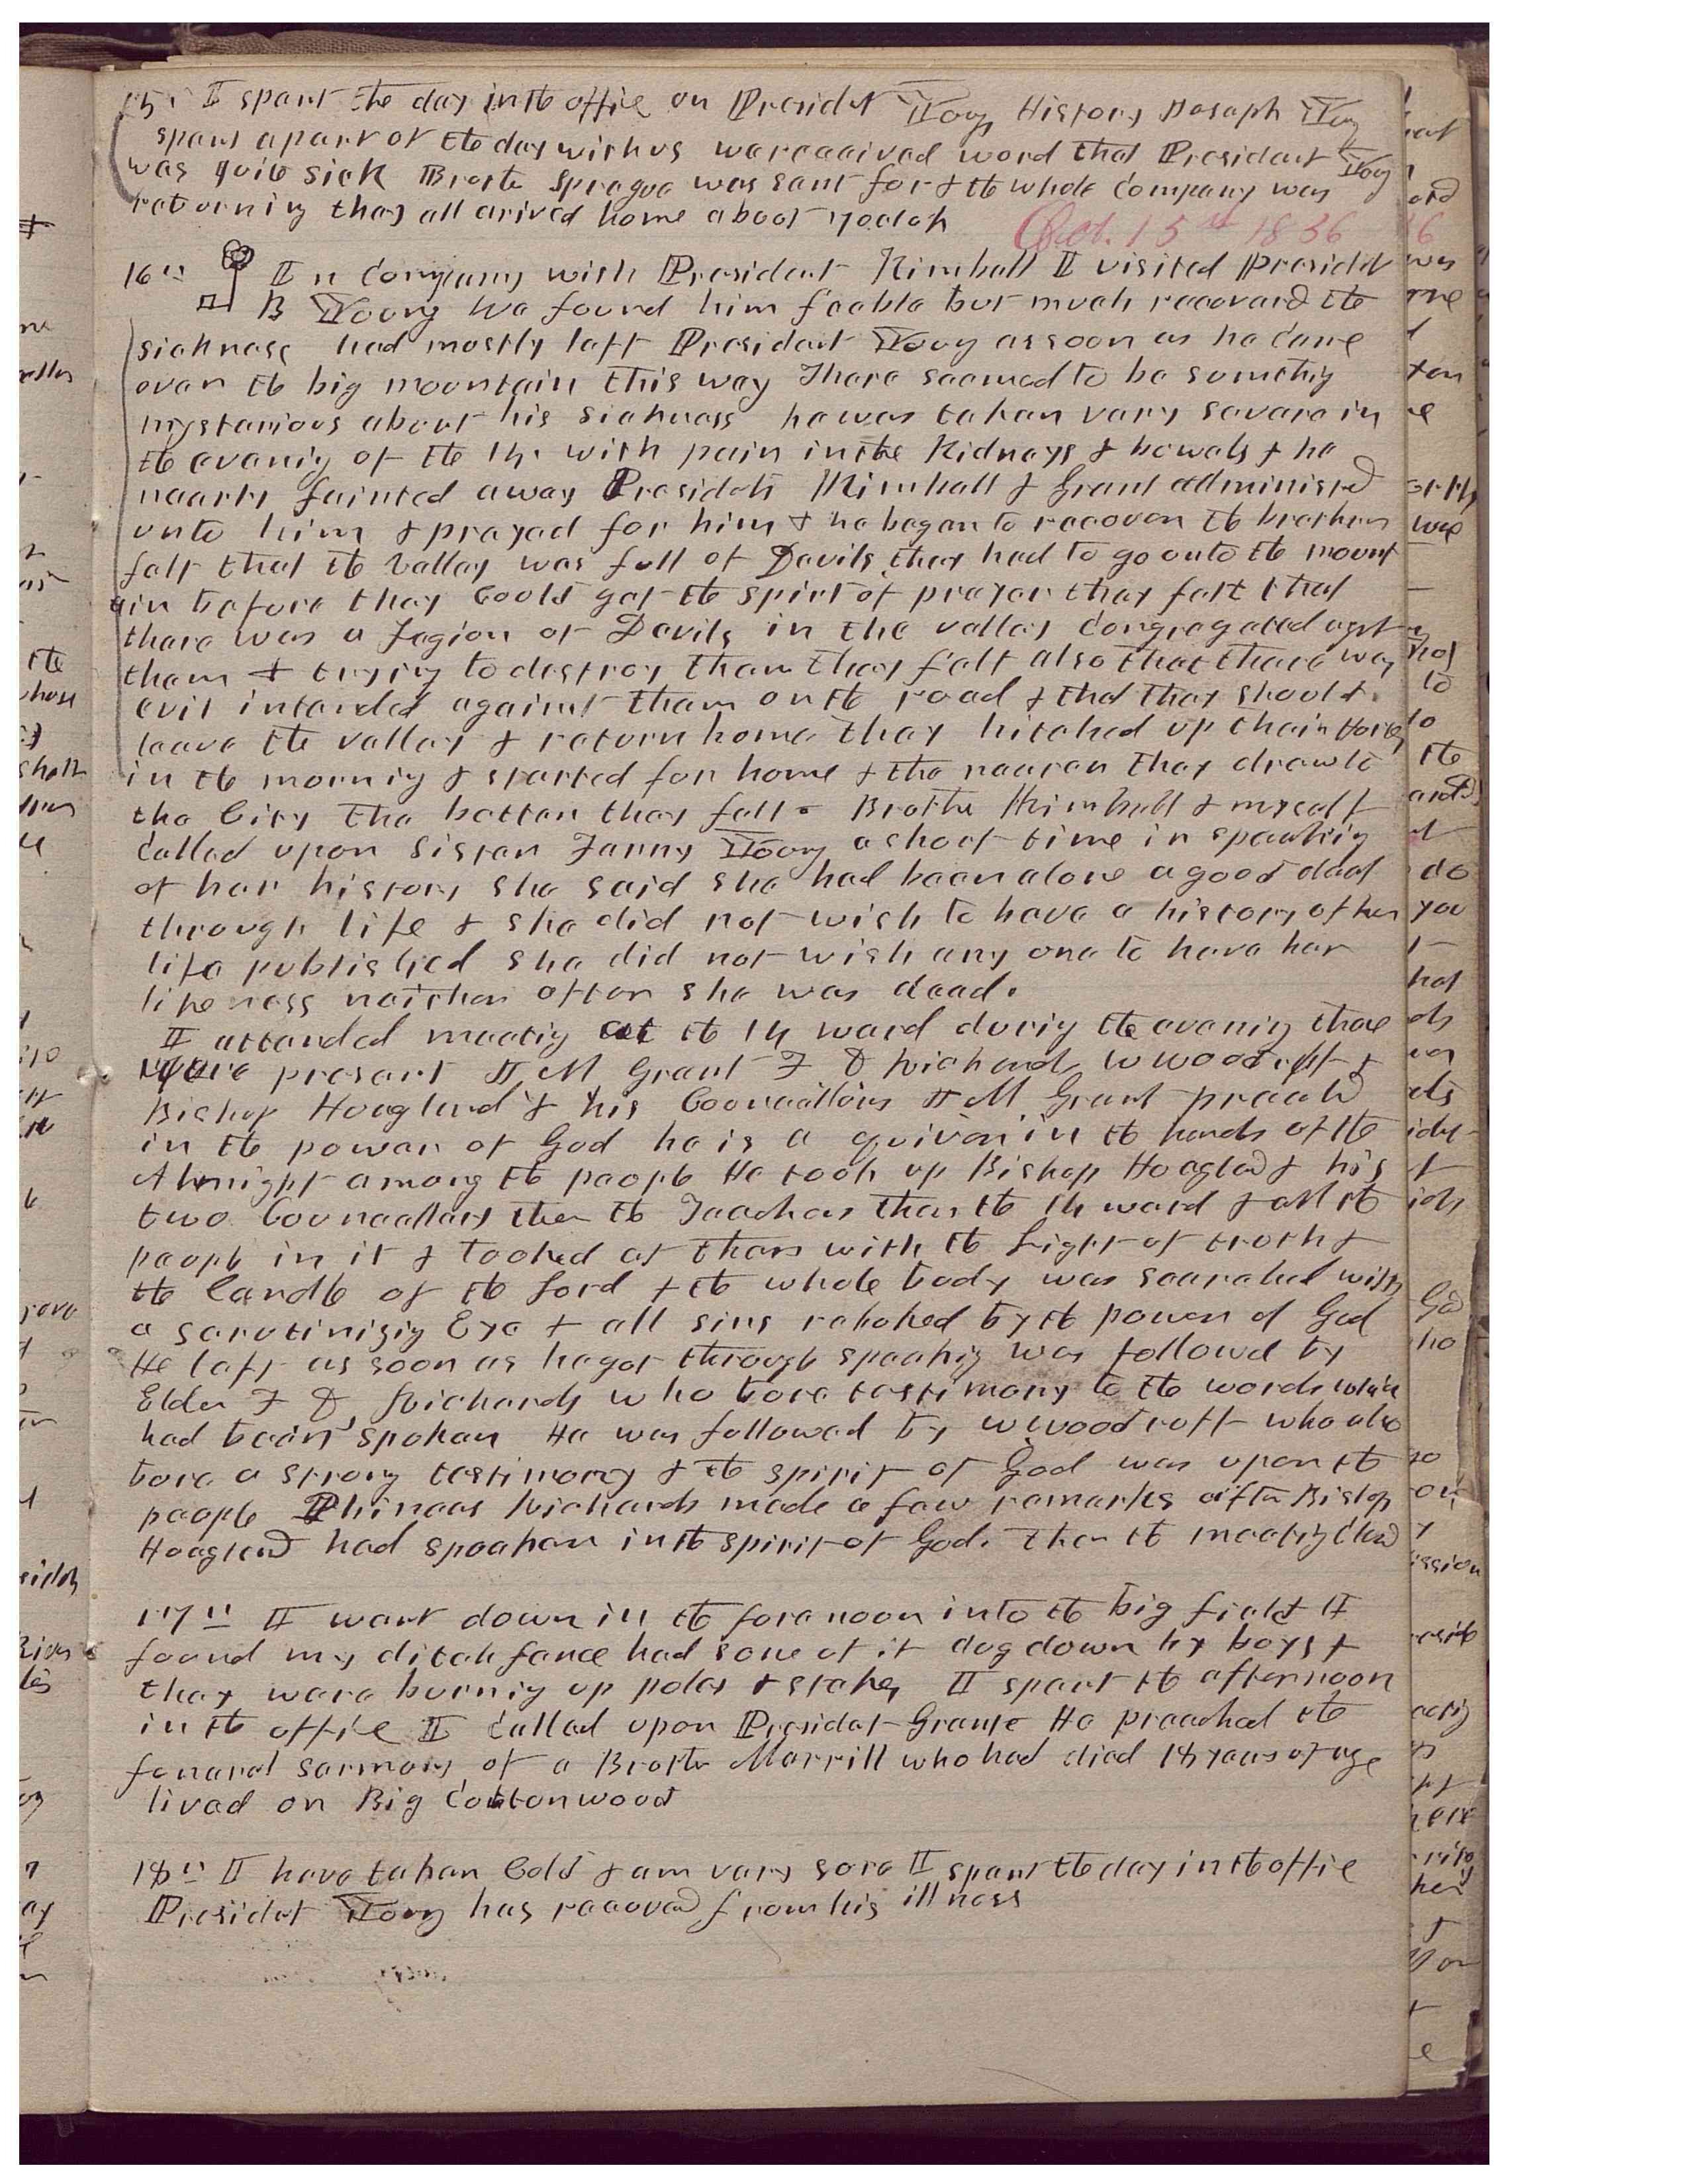 15. I spent the day in the office on Presidet Young History Joseph Young
spent a part of the day with us we received word that President Young
was quite sick Brothe Sprague was sent for & the whole Company was
returning they all arived home about 7 oclok
Oct. 15th 1856
16th In Company with President Kimball I visited Presidet
B Young We found him feeble but much recoverd the
sickness had mostly left President Young as soon as he came
over the big mountain this way There seemed to be somethig
mysterious about his sickness he was taken very severe in
the evenig of the 14. with pain in the Kidneys & bowels & he
nearly fainted away Presidets Kimball & Grant administed
unto him & prayed for him & he began to recover the brethren
felt that the valley was full of Devils they had to go onto the mount
ain before they Could get the spirit of prayer they felt that
there was a Legion of Devils in the valley Congregated agst
them & trying to destroy them they felt also that there was
evil intended against them on the road & that they should
leave the valley & return home they hitched up their Horses
in the mornig & started for home & the nearer they drew to
the City the better they felt. Brothe Kimball & myself
Called upon Sister Fanny Young a short time in speakig
of her history she said she had been alone a good deal
through life & she did not wish to have a history of her
life published she did not wish any one to have her
likeness neither after she was dead.
I attended meetig at the 14 ward durig the evenig thare
were present J M Grant F D Richards W Woodruff &
Bishop Hoagland & his Councillors J M Grant preachd
in the power of God he is a quiver in the hands of the
Almight among the people He took up Bishop Hoagland & his
two Councellors then the Teachers then the 14 ward & all the
people in it & looked at them with the Light of truth &
the Candle of the Lord & the whole body was searched with
a scrutinisig Eye & all sins rebuked by the power of God
He left as soon as he got through speakig was followed by
Elder F D Richards who bore testimony to the words which
had been spoken He was followed by W Woodruff who also
bore a strong testimony & the spirit of God was upon the
people Phineas Richards made a few remarks after Bishop
Hoagland had speaken in the spirit of God. Then the meetig closed
17th I went down in the forenoon into the big field I
found my ditch fence had some of it dug down by boys &
they were burnig up poles & stakes I spent the afternoon
in the office I Called upon Presidet Grant He preached the
funeral sermon of a Brother Merrill who had died 18 years of age
lived on Big Cottonwood
18th I have taken Cold & am very sore I spent the day in the offie
Presidet Young has recoved from his illness